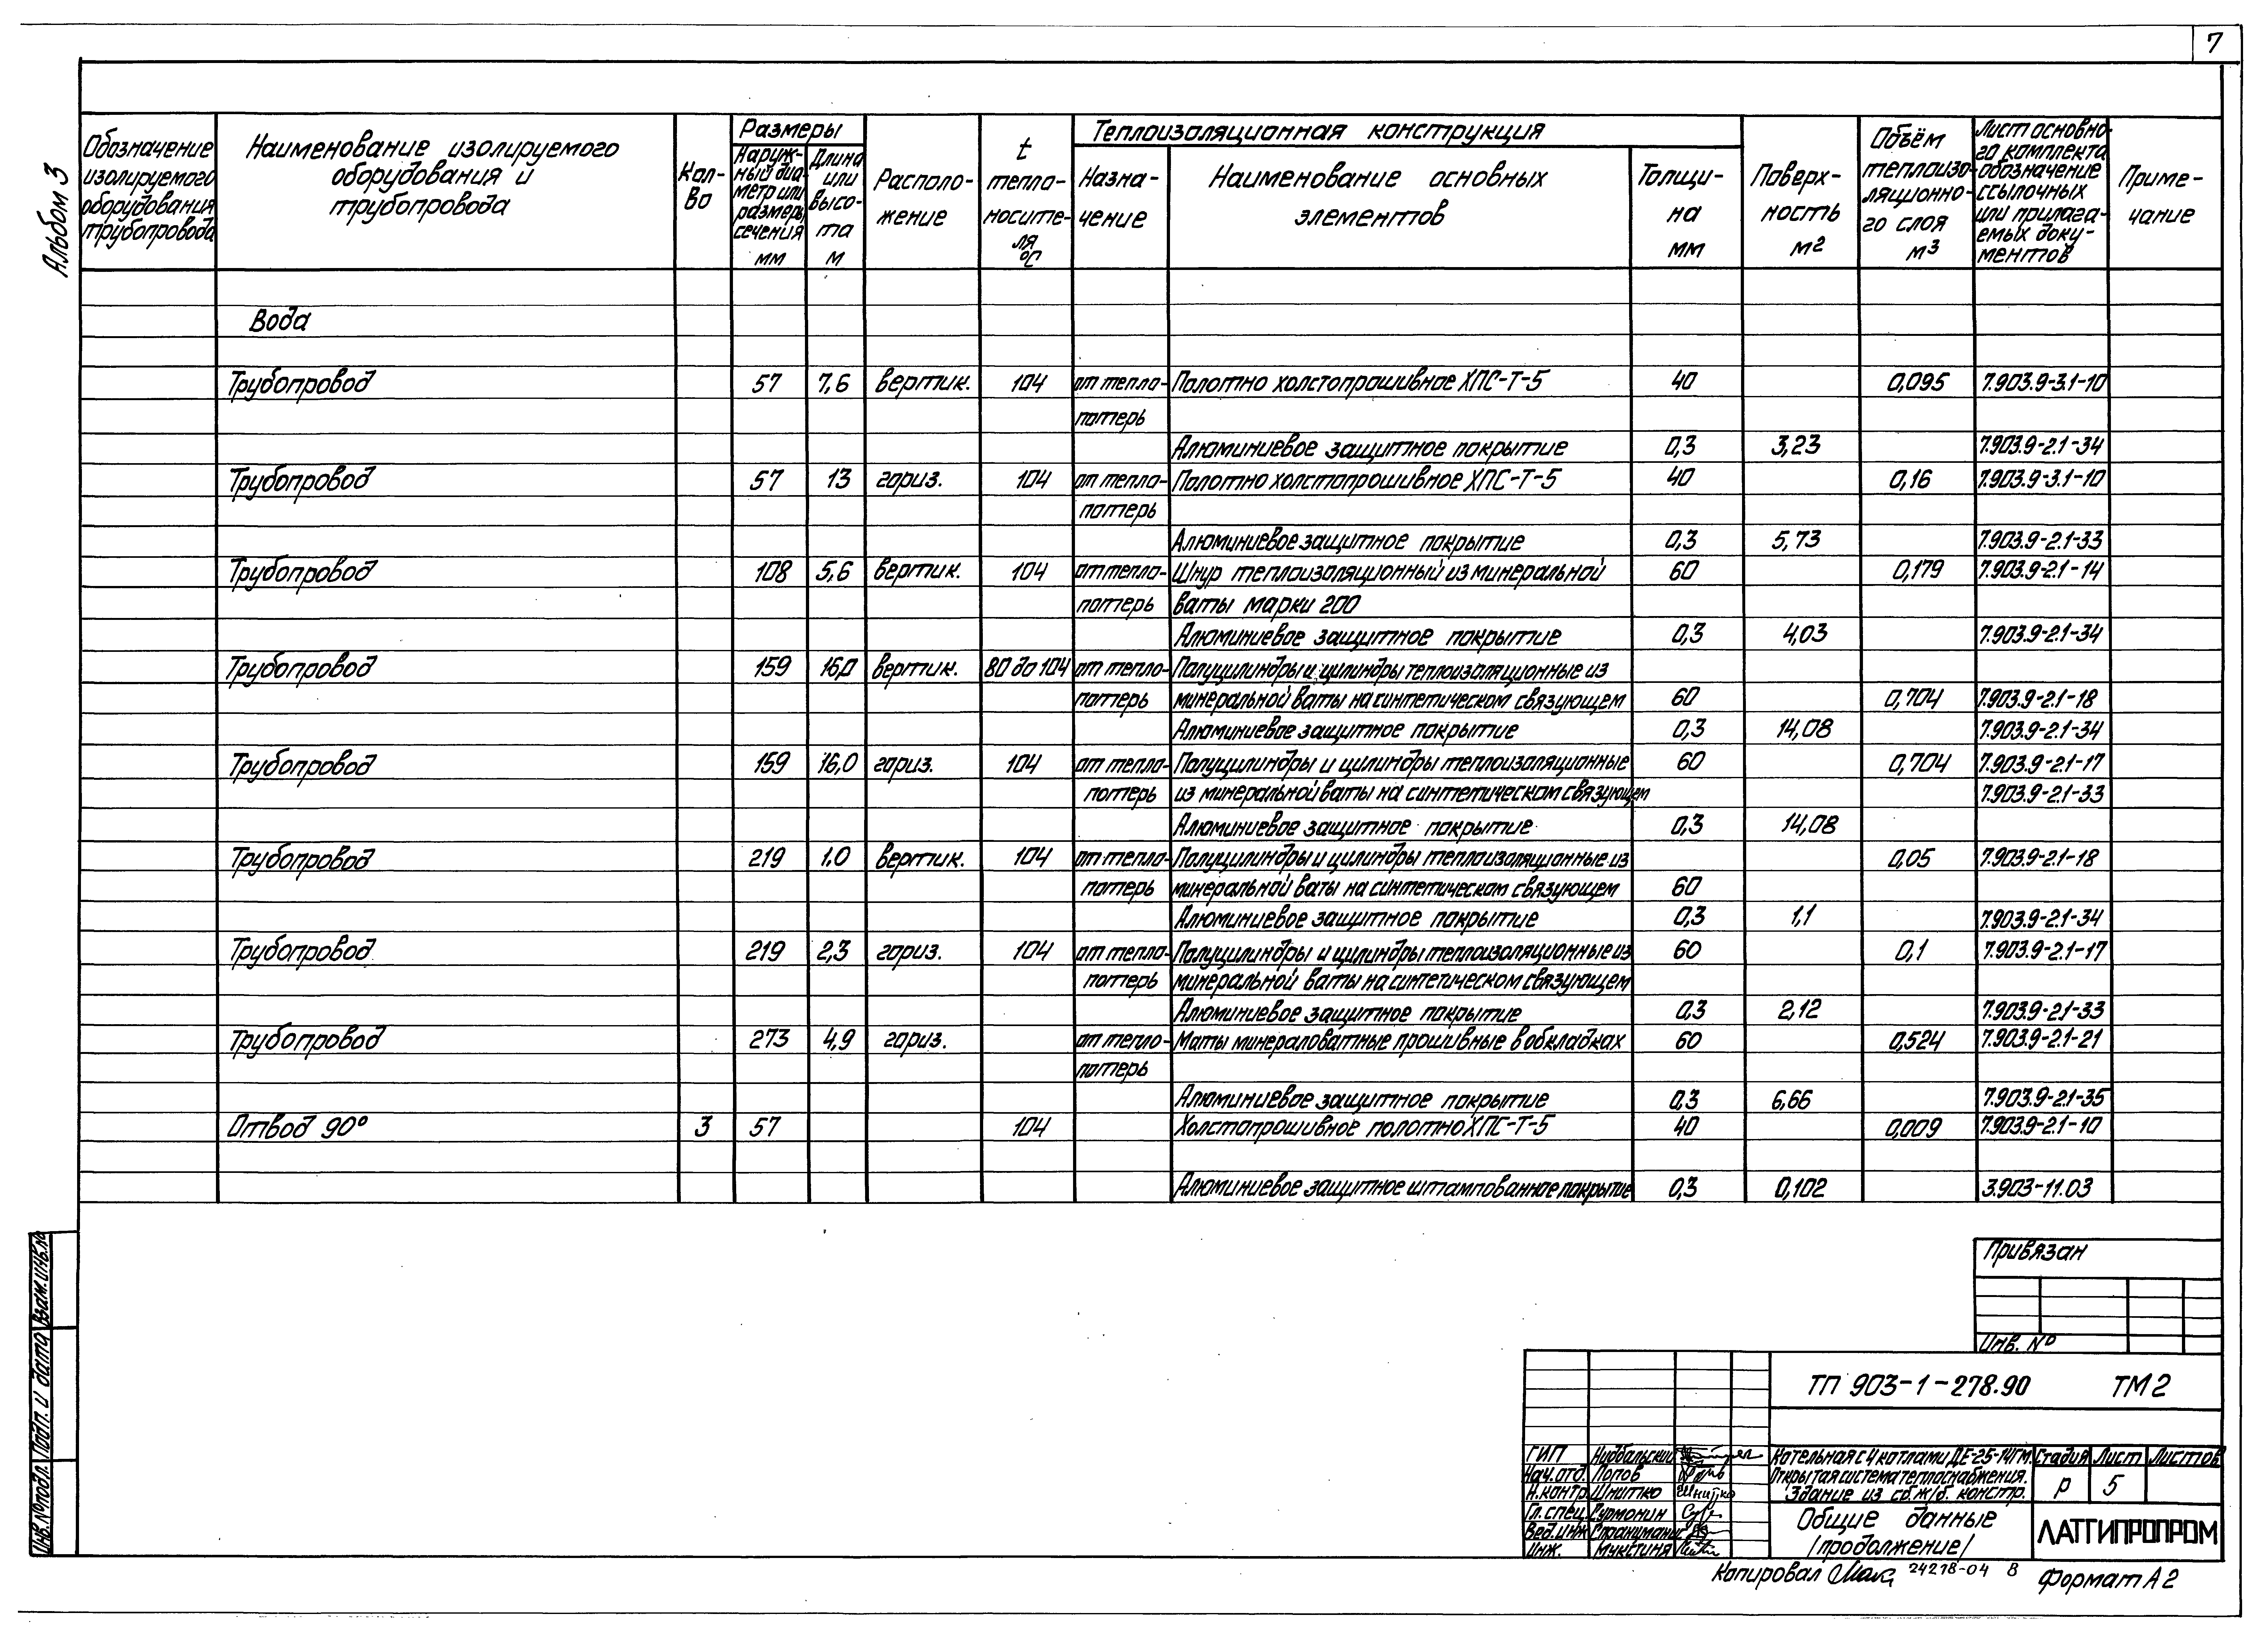 7
Альбом 3
Обозначение изолируемого оборудования трубопровода
Наименование изолируемого оборудования и трубопровода
Кол-во
Размеры
Наруж-ный диа-метр или размеры сечения мм
Длина или высо-та м
Располо-жение
t тепло-носите-ля °С
Теплоизоляционная конструкция
Назна-чение
Наименование основных элементов
Толщи-на мм
Поверх-ность м²
Объём теплоизо-ляционно-го слоя м³
Лист основно-го комплекта, обозначение ссылочных или прилага-емых доку-ментов
Приме-чание
Вода
Трубопровод 57 7,6 вертик. 104 от тепло- Полотно холстопрошивное ХПС-Т-5 40 0,095 7.903.9-3.1-10
потерь
Алюминиевое защитное покрытие 0,3 3,23 7.903.9-2.1-34
Трубопровод 57 13 гориз. 104 от тепло- Полотно холстопрошивное ХПС-Т-5 40 0,16 7.903.9-3.1-10
потерь
Алюминиевое защитное покрытие 0,3 5,73 7.903.9-2.1-33
Трубопровод 108 5,6 вертик. 104 от тепло- Шнур теплоизоляционный из минеральной 60 0,179 7.903.9-2.1-14
потерь ваты марки 200
Алюминиевое защитное покрытие 0,3 4,03 7.903.9-2.1-34
Трубопровод 159 16,0 вертик. 80 до 104 от тепло- Полуцилиндры и цилиндры теплоизоляционные из
потерь минеральной ваты на синтетическом связующем 60 0,704 7.903.9-2.1-18
Алюминиевое защитное покрытие 0,3 14,08 7.903.9-2.1-34
Трубопровод 159 16,0 гориз. 104 от тепло- Полуцилиндры и цилиндры теплоизоляционные 60 0,704 7.903.9-2.1-17
потерь из минеральной ваты на синтетическом связующем 7.903.9-2.1-33
Алюминиевое защитное покрытие 0,3 14,08
Трубопровод 219 1.0 вертик. 104 от тепло- Полуцилиндры и цилиндры теплоизоляционные из 0,05 7.903.9-2.1-18
потерь минеральной ваты на синтетическом связующем 60
Алюминиевое защитное покрытие 0,3 1,1 7.903.9-2.1-34
Трубопровод 219 2,3 гориз. 104 от тепло- Полуцилиндры и цилиндры теплоизоляционные из 60 0,1 7.903.9-2.1-17
потерь минеральной ваты на синтетическом связующем
Алюминиевое защитное покрытие 0,3 2,12 7.903.9-2.1-33
Трубопровод 273 4,9 гориз. от тепло- Маты минераловатные прошивные в обкладках 60 0,524 7.903.9-2.1-21
потерь
Алюминиевое защитное покрытие 0,3 6,66 7.903.9-2.1-35
Отвод 90° 3 57 104 Холстопрошивное полотно ХПС-Т-5 40 0,009 7.903.9-2.1-10
Алюминиевое защитное штампованное покрытие 0,3 0,102 3.903-11.03
Привязан
Инв. №
ТП 903-1-278.90 ТМ2
ГИП Нидбальский
Нач.отд. Попов
Н.контр. Шнитко
Гл.спец. Сурмонин
Вед.инж.
Инж. Мукстиня
Котельная с 4 котлами ДЕ-25-14ГМ.
Открытая система теплоснабжения.
Здание из сб.ж/б. констр.
Стадия Лист Листов
Р 5
Общие данные
/продолжение/
ЛАТГИПРОПРОМ
Копировал 24278-04 8 Формат А2
Взам.инв.№
Подп. и дата
Инв.№подл.